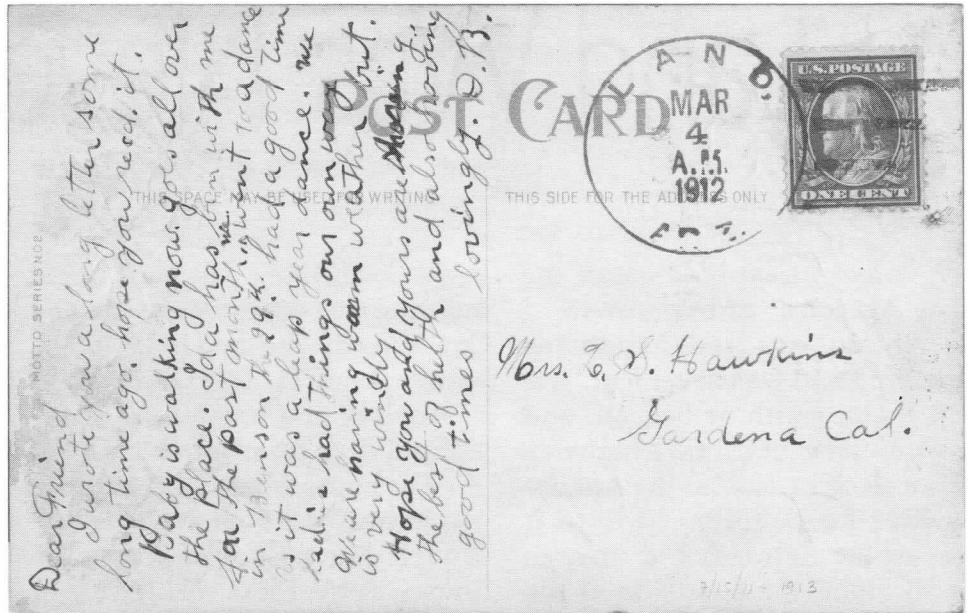 POST CARD
THIS SPACE MAY BE USED FOR WRITING
THIS SIDE FOR THE ADDRESS ONLY
MOTTO SERIES NO2
Dear Friend
I wrote you a long letter some
long time ago. hope you recd. it.
Baby is walking now. goes all over
the place. Ida has ben with me
for the past month. we went to a dance
in Benson the 29th. had a good time
as it was a leap year dance. we
ladies had things our own way
We are having warm weather but
is very windy.
Hope you and yours are having
the best of helth and also having
good times lovingly. D. B.
MAR
4
A.M.
1912
U.S. POSTAGE
ONE CENT
Mrs. L. S. Hawkins
Gardena Cal.
7/15/11 - 1913